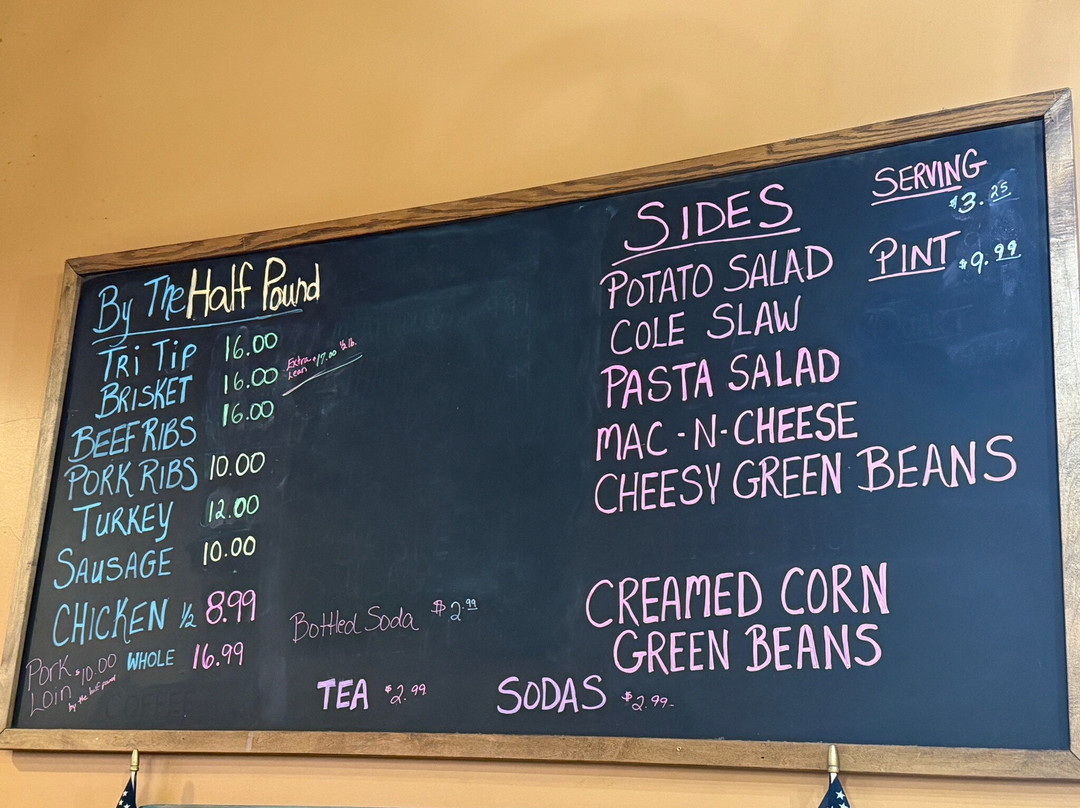 By The Half Pound
TRI TIP 16.00
BRISKET 16.00 Extra Lean $17.00 ½ lb.
BEEF RIBS 16.00
PORK RIBS 10.00
TURKEY 12.00
SAUSAGE 10.00
CHICKEN ½ 8.99
WHOLE 16.99
Pork Loin $10.00 by the half pound
COFFEE
Bottled Soda $2.99
TEA $2.99
SODAS $2.99
SIDES
POTATO SALAD
COLE SLAW
PASTA SALAD
MAC-N-CHEESE
CHEESY GREEN BEANS
CREAMED CORN
GREEN BEANS
SERVING
$3.25
PINT $9.99